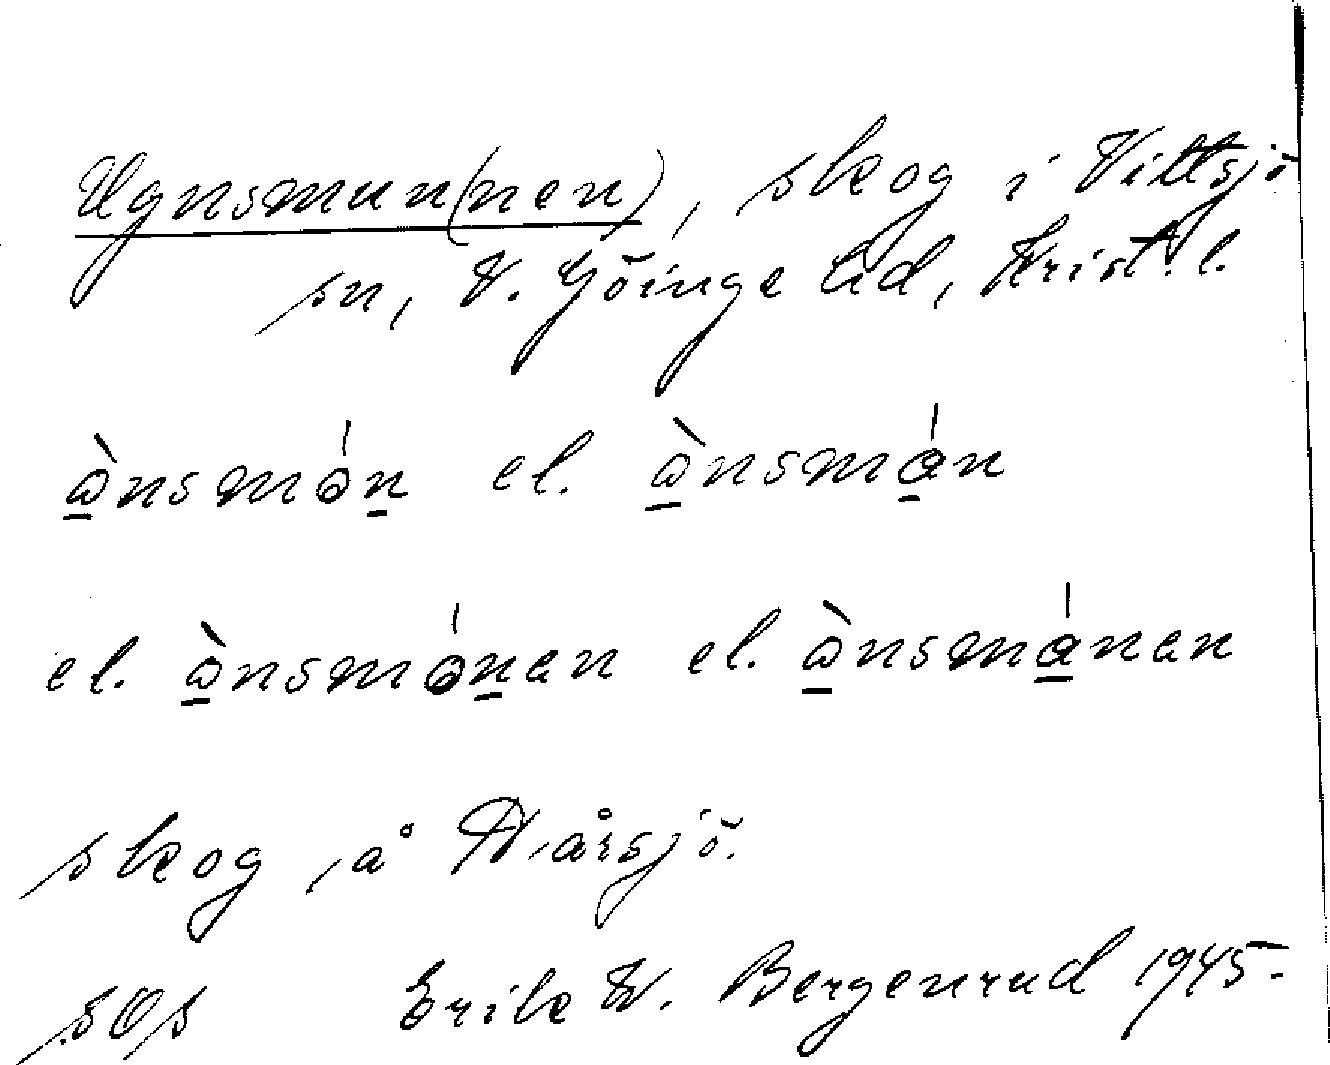 Ugnsmun(nen), skog i Vittsjö
sn, V. Göinge hd, Krist. l.
ànsmón el. ànsmán
el. ànsmónen el. ànsmánen
skog, å Hårsjö.
SOS Erik W. Bergenrud 1945.